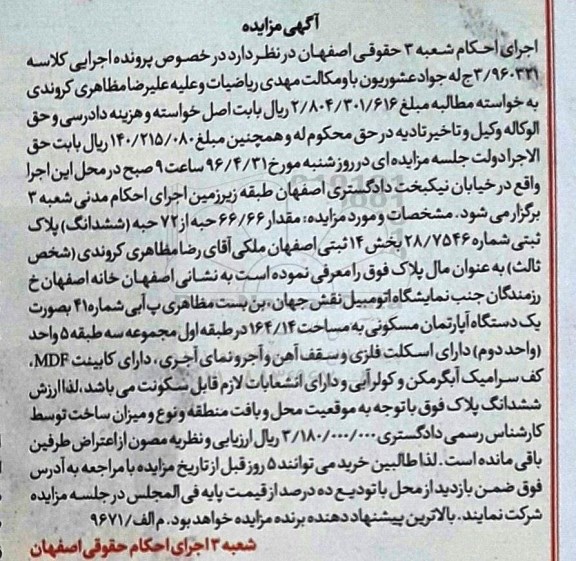 آگهی مزایده
اجرای احکام شعبه ۳ حقوقی اصفهان در نظر دارد در خصوص پرونده اجرایی کلاسه
۳/۹۶۰۳۲۱ج له جواد عشوریون با وکالت مهدی ریاضیات و علیه علیرضا مظاهری کروندی
به خواسته مطالبه مبلغ ۲/۸۰۴/۳۰۱/۶۱۶ ریال بابت اصل خواسته و هزینه دادرسی و حق
الوکاله وکیل و تاخیر تادیه در حق محکوم له و همچنین مبلغ ۱۴۰/۲۱۵/۰۸۰ ریال بابت حق
الاجرا دولت جلسه مزایده ای در روز شنبه مورخ ۹۶/۴/۳۱ ساعت ۹ صبح در محل این اجرا
واقع در خیابان نیکبخت دادگستری اصفهان طبقه زیرزمین اجرای احکام مدنی شعبه ۳
برگزار می شود. مشخصات و مورد مزایده: مقدار ۶۶/۶۶ حبه از ۷۲ حبه (ششدانگ) پلاک
ثبتی شماره ۲۸/۷۵۴۶ بخش ۱۴ ثبتی اصفهان ملکی آقای رضا مظاهری کروندی (شخص
ثالث) به عنوان مال پلاک فوق را معرفی نموده است به نشانی اصفهان خانه اصفهان خ
رزمندگان جنب نمایشگاه اتومبیل نقش جهان، بن بست مظاهری پ آبی شماره ۴۱ بصورت
یک دستگاه آپارتمان مسکونی به مساحت ۱۶۴/۱۴ در طبقه اول مجموعه سه طبقه ۵ واحد
(واحد دوم) دارای اسکلت فلزی و سقف آهن و آجر و نمای آجری، دارای کابینت MDF،
کف سرامیک آبگرمکن و کولر آبی و دارای انشعابات لازم قابل سکونت می باشد، لذا ارزش
ششدانگ پلاک فوق با توجه به موقعیت محل و بافت منطقه و نوع و میزان ساخت توسط
کارشناس رسمی دادگستری ۳/۱۸۰/۰۰۰/۰۰۰ ریال ارزیابی و نظریه مصون از اعتراض طرفین
باقی مانده است. لذا طالبین خرید می توانند ۵ روز قبل از تاریخ مزایده با مراجعه به آدرس
فوق ضمن بازدید از محل با تودیع ده درصد از قیمت پایه فی المجلس در جلسه مزایده
شرکت نمایند. بالاترین پیشنهاد دهنده برنده مزایده خواهد بود. م الف/۹۶۷۱
شعبه ۳ اجرای احکام حقوقی اصفهان